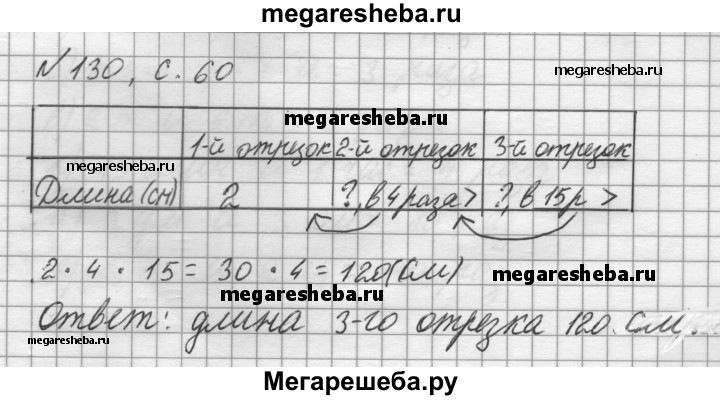 megaresheba.ru
№ 130, с. 60
megaresheba.ru
megaresheba.ru
1-й отрезок 2-й отрезок 3-й отрезок
megaresheba.ru
Длина (см) 2 ?, в 4 раза > ?, в 15 р >
2 · 4 · 15 = 30 · 4 = 120 (см)
megaresheba.ru
megaresheba.ru
Ответ: длина 3-го отрезка 120 см.
megaresheba.ru
Мегарешеба.ру